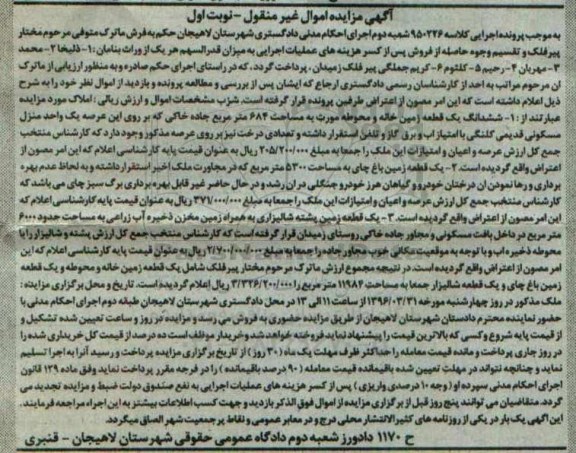 آگهی مزایده اموال غیر منقول -نوبت اول
به موجب پرونده اجرایی کلاسه ۹۵۰۲۲۶ شعبه دوم اجرای احکام مدنی دادگستری شهرستان لاهیجان حکم به فرش ماترک متوفی مرحوم مختار
پیر فلک و تقسیم وجوه حاصله از فروش پس از کسر هزینه های عملیات اجرایی به میزان قدرالسهم هر یک از وراث بنامان :۱- ذلیخا ۲- محمد
۳- مهربان ۴- رحیم ۵- کلثوم ۶- کریم جملگی پیر فلک زمیدان ، پرداخت گردد . که در راستای اجرای حکم صادره و به منظور ارزیابی از ماترک
آن مرحوم مراتب به احد از کارشناسان رسمی دادگستری ارجاع که ایشان پس از بررسی و مطالعه پرونده و بازدید از اموال نظر خود را به شرح
ذیل اعلام داشته است که این امر مصون از اعتراض طرفین پرونده قرار گرفته است. شرب مشخصات اموال و ارزش ریالی : املاک مورد مزایده
عبارتند از : ۱- ششدانگ یک قطعه زمین خانه و محوطه مورث به مساحت ۶۸۴ متر مربع جاده خاکی که بر روی این عرصه یک واحد منزل
مسکونی قدیمی کلنگی با امتیاز آب و برق گاز و تلفن استقرار داشته و تعدادی درخت نیز بر روی عرصه مذکور وجود دارد که کارشناس منتخب
جمع کل ارزش عرصه و اعیان و امتیازات این ملک را جمعا به مبلغ ۲۰۵/۲۰۰/۰۰۰ ریال به عنوان قیمت پایه کارشناسی اعلام که این امر مصون از
اعتراض واقع گردیده است. ۲- یک قطعه زمین باغ چای به مساحت ۵۳۰۰ متر مربع که در مجاورت ملک اخیر استقرار داشته و به لحاظ عدم بهره
برداری و رها نمودن آن درختان خودرو و گیاهان هرز خودرو جنگلی در آن رشد و در حال حاضر غیر قابل بهره برداری برگ سبز چای می باشد که
کارشناس منتخب جمع کل ارزش عرصه و اعیان و امتیازات این ملک را جمعا به مبلغ ۳۷۱/۰۰۰/۰۰۰ ریال به عنوان قیمت پایه کارشناسی اعلام که
این امر مصون از اعتراض واقع گردیده است. ۳- یک قطعه زمین پشته شالیزاری به همراه زمین مخزن ذخیره آب زراعی به مساحت حدود ۶۰۰۰
متر مربع در داخل بافت مسکونی و مجاور جاده خاکی روستای زمیدان قرار گرفته است که کارشناس منتخب جمع کل ارزش پشته و شالیزار را با
محوطه ذخیره آب و با توجه به موقعیت مکانی خوب مجاور جاده را جمعا به مبلغ ۲/۷۰۰/۰۰۰/۰۰۰ ریال به عنوان قیمت پایه کارشناسی اعلام که این
امر مصون از اعتراض واقع گردیده است. در نتیجه مجموع ارزش ماترک مرحوم مختار پیر فلک شامل یک قطعه زمین خانه و محوطه و یک قطعه
زمین باغ چای و یک قطعه شالیزار جمعا به مساحت ۱۱۹۸۴ متر مربع را ۳/۳۲۶/۲۰۰/۰۰۰ ریال اعلام گردیده است. تاریخ و محل برگزاری مزایده :
ملک مذکور در روز چهارشنبه مورخه ۱۳۹۶/۰۳/۳۱ از ساعت ۱۱ الی ۱۳ در محل دادگستری شهرستان لاهیجان طبقه دوم اجرای احکام مدنی با
حضور نماینده محترم دادستان شهرستان لاهیجان از طریق مزایده حضوری به فروش می رسد و مزایده در روز و ساعت تعیین شده تشکیل و
از قیمت پایه شروع و کسی که بالاترین قیمت را پیشنهاد نماید فروخته خواهد شد و خریدار موظف است ده درصد از قیمت کل خریداری شده را
در روز جاری پرداخت و مانده قیمت معامله را حداکثر ظرف مهلت یک ماه (۳۰ روز) از تاریخ برگزاری مزایده پرداخت و رسید آنرا به اجرا تسلیم
نماید و چنانچه نتواند در مهلت تعیین شده باقیمانده قیمت معامله (۹۰ درصد باقیمانده) را در فرجه مقرر پرداخت نماید وفق ماده ۱۲۹ قانون
اجرای احکام مدنی سپرده او (وجه ۱۰ درصدی واریزی) پس از کسر هزینه های عملیات اجرایی به نفع صندوق دولت ضبط و مزایده تجدید می
گردد. متقاضیان می توانند پنج روز قبل از برگزاری مزایده از اموال فوق الذکر بازدید و جهت کسب اطلاعات بیشتر به این اجراء مراجعه فرمایند.
این آگهی یک بار در یکی از روزنامه های کثیرالانتشار محلی درج و در معابر عمومی و نقاط پر جمعیت شهر الصاق میگردد.
ح ۱۱۷۰ دادورز شعبه دوم دادگاه عمومی حقوقی شهرستان لاهیجان - قنبری